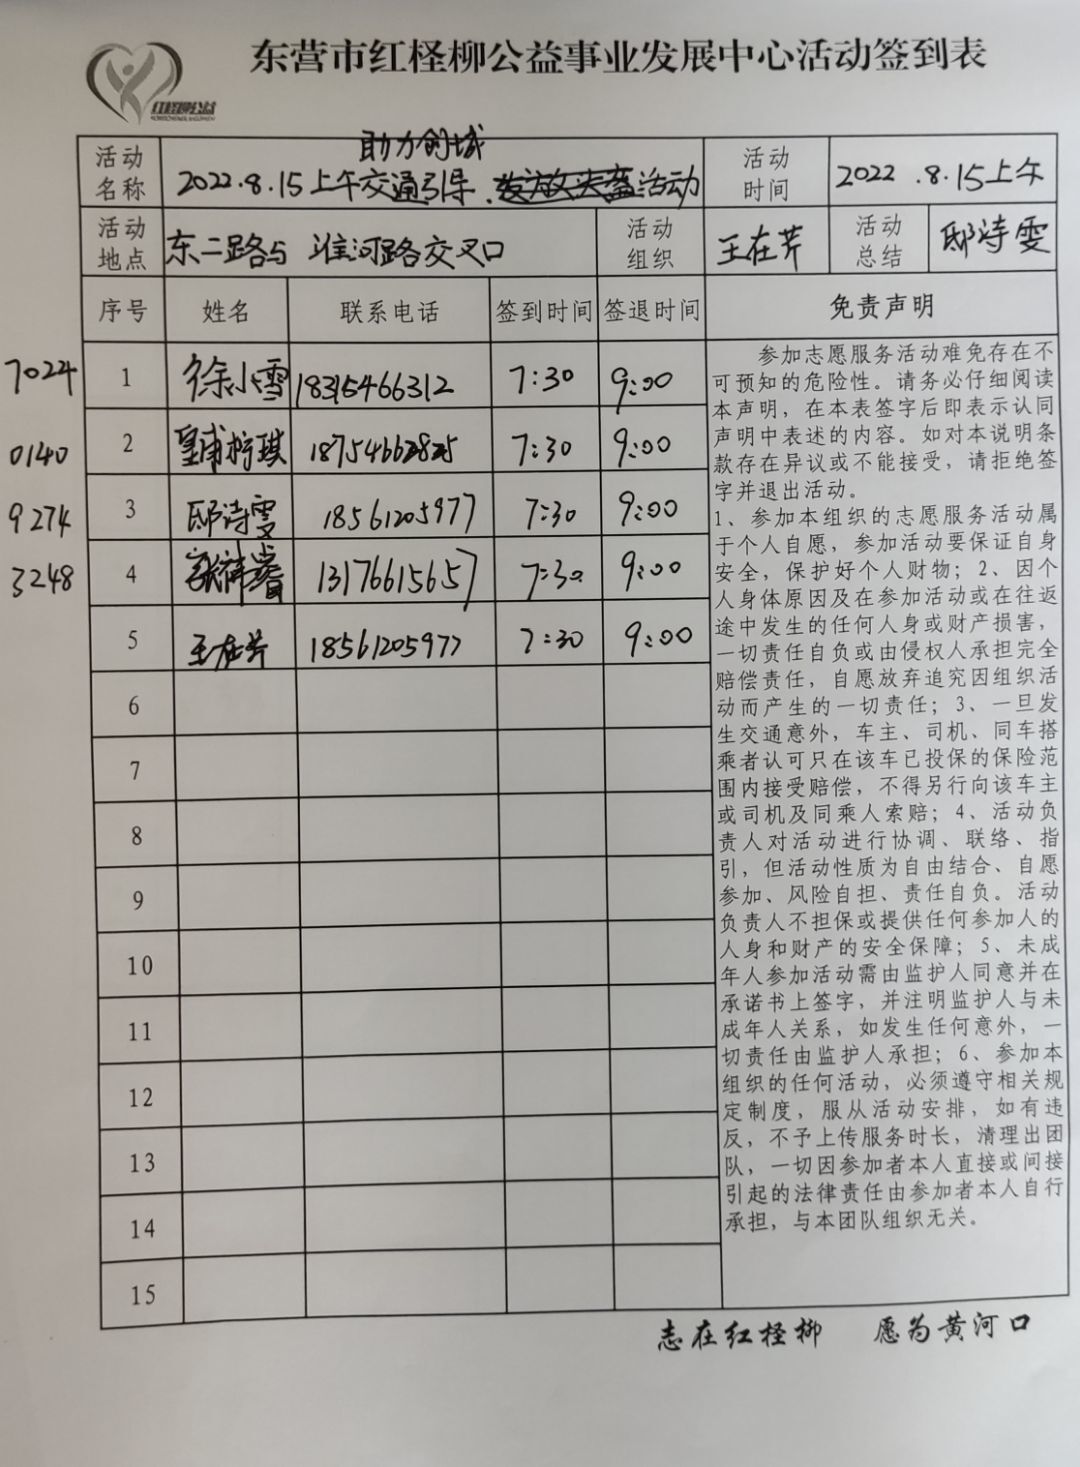 东营市红柽柳公益事业发展中心活动签到表
红柽柳公益
活动名称 助力创城
2022.8.15上午交通引导、发放头盔活动
活动时间 2022.8.15上午
活动地点 东二路与 淮河路交叉口 活动组织 王在芹 活动总结 邸诗雯
序号 姓名 联系电话 签到时间 签退时间 免责声明
7024 1 徐小雪 18315466312 7:30 9:00
0140 2 皇甫 琪 7:30 9:00
9274 3 邸诗雯 18561205977 7:30 9:00
3248 4 张祥睿 13176615657 7:30 9:00
5 王在芹 18561205977 7:30 9:00
6
7
8
9
10
11
12
13
14
15
参加志愿服务活动难免存在不
可预知的危险性。请务必仔细阅读
本声明，在本表签字后即表示认同
声明中表述的内容。如对本说明条
款存在异议或不能接受，请拒绝签
字并退出活动。
1、参加本组织的志愿服务活动属
于个人自愿，参加活动要保证自身
安全，保护好个人财物；2、因个
人身体原因及在参加活动或在往返
途中发生的任何人身或财产损害，
一切责任自负或由侵权人承担完全
赔偿责任，自愿放弃追究因组织活
动而产生的一切责任；3、一旦发
生交通意外，车主、司机、同车搭
乘者认可只在该车已投保的保险范
围内接受赔偿，不得另行向该车主
或司机及同乘人索赔；4、活动负
责人对活动进行协调、联络、指
引，但活动性质为自由结合、自愿
参加、风险自担、责任自负。活动
负责人不担保或提供任何参加人的
人身和财产的安全保障；5、未成
年人参加活动需由监护人同意并在
承诺书上签字，并注明监护人与未
成年人关系，如发生任何意外，一
切责任由监护人承担；6、参加本
组织的任何活动，必须遵守相关规
定制度，服从活动安排，如有违
反，不予上传服务时长，清理出团
队，一切因参加者本人直接或间接
引起的法律责任由参加者本人自行
承担，与本团队组织无关。
志在红柽柳 愿为黄河口